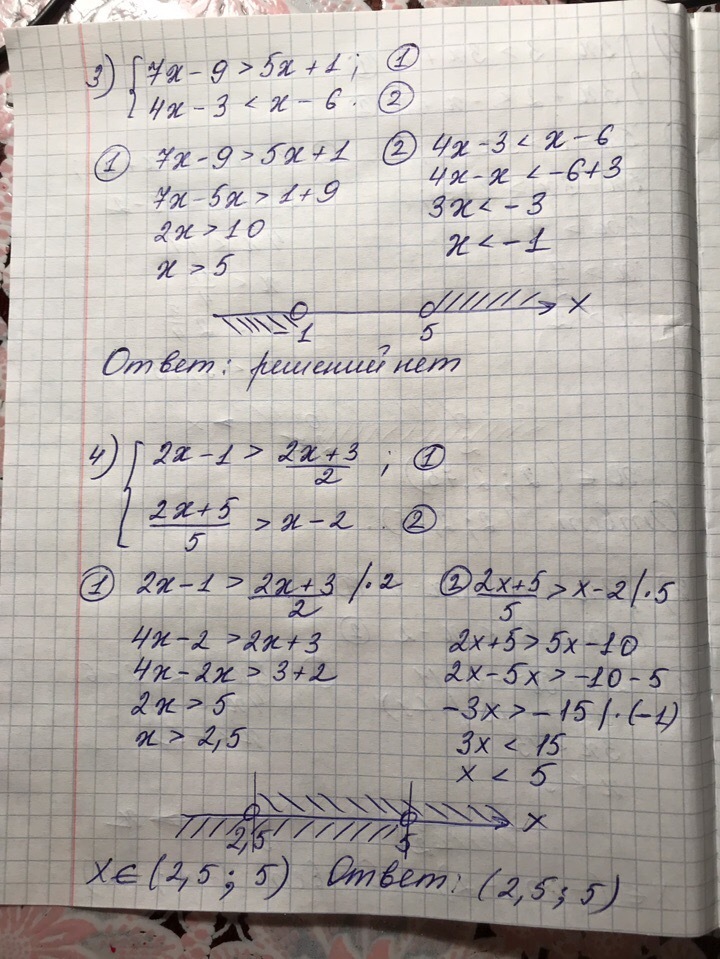 3) { 7x-9>5x+1; ①
4x-3<x-6. ②
① 7x-9>5x+1
7x-5x>1+9
2x>10
x>5
② 4x-3<x-6
4x-x<-6+3
3x<-3
x<-1
-1 5 x
Ответ: решений нет
4) { 2x-1> (2x+3)/2 ; ①
(2x+5)/5 >x-2. ②
① 2x-1> (2x+3)/2 /·2
4x-2>2x+3
4x-2x>3+2
2x>5
x>2,5
② (2x+5)/5 >x-2/·5
2x+5>5x-10
2x-5x>-10-5
-3x>-15/·(-1)
3x<15
x<5
2,5 5 x
x∈(2,5;5) Ответ: (2,5;5)